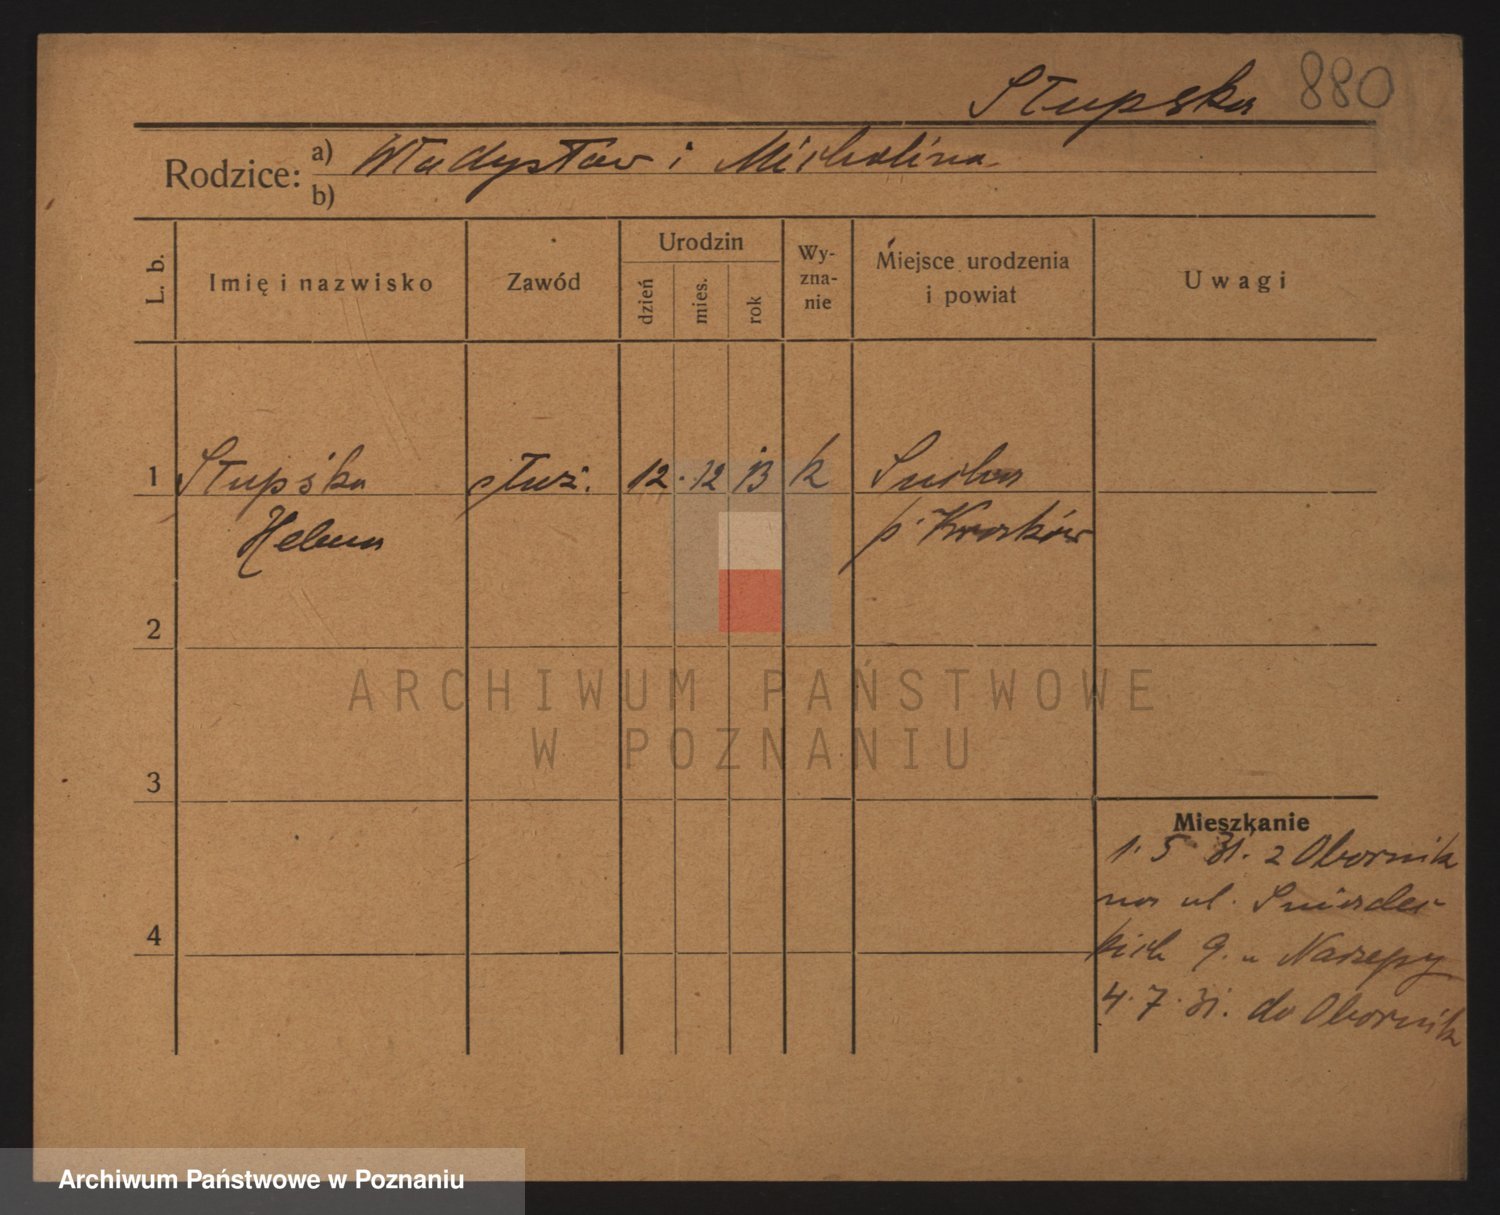 Słupska 880
Rodzice: a) Władysław i Michalina
b)
L. b. Imię i nazwisko Zawód Urodzin dzień mies. rok Wy-zna-nie Miejsce urodzenia i powiat Uwagi
1 Słupska służ. 12. 12 13 k Sucha
Helena p. Kraków
2
3
4
Mieszkanie
1. 5 31. z Obornik
na ul. Śniadec-
kich 9. u
4. 7. 31. do Obornik
ARCHIWUM PAŃSTWOWE
W POZNANIU
Archiwum Państwowe w Poznaniu